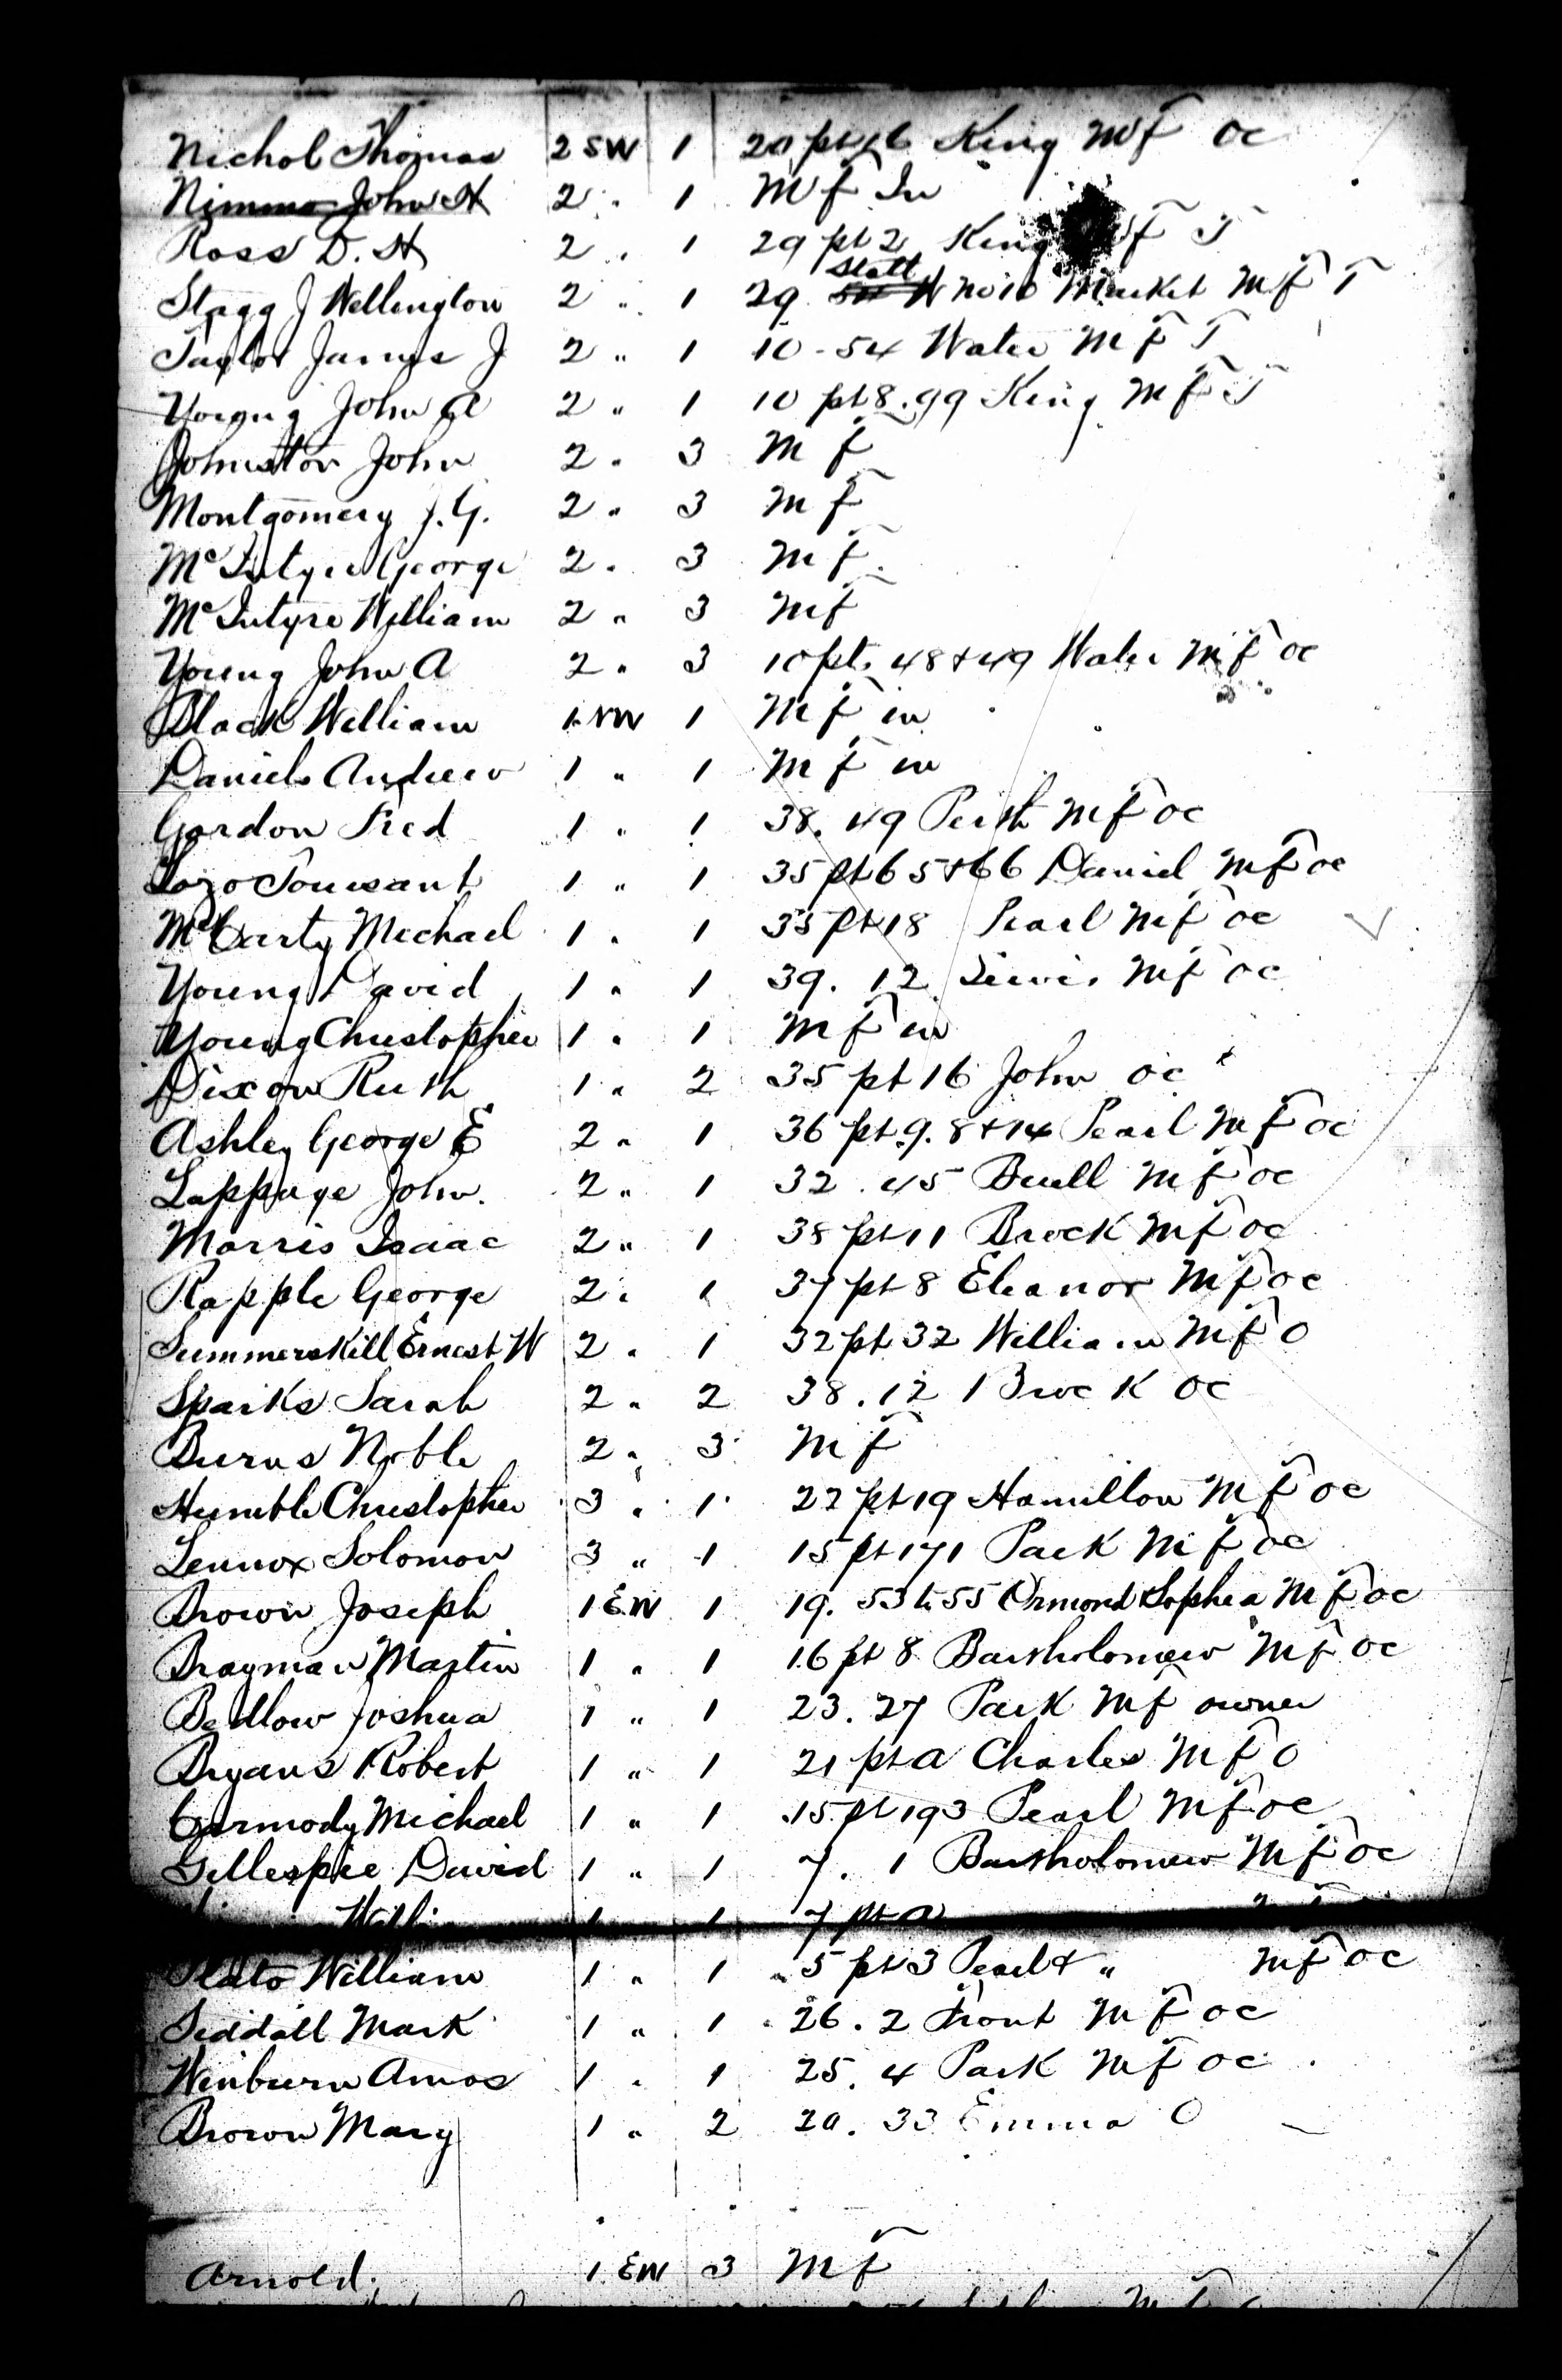 Nichol Thomas 2 SW 1 20 pt 26 King MF OC
Nimmo John H 2 " 1 MF In
Ross D. H 2 " 1 29 pt 2 King MF T
Stagg J Wellington 2 " 1 29 Stall W No 10 Market MF T
Taylor James J 2 " 1 10 - 54 Water MF T
Young John A 2 " 1 10 pt 8. 99 King MF T
Johnston John 2 " 3 MF
Montgomery J. G. 2 " 3 MF
McIntyre George 2 " 3 MF
McIntyre William 2 " 3 MF
Young John A 2 " 3 10 pt. 48 + 49 Water MF OC
Black William 1 NW 1 MF in
Daniels Andrew 1 " 1 MF in
Gordon Fred 1 " 1 38. 49 Perth MF OC
Lozo Tousant 1 " 1 35 pt 65 + 66 Daniel MF OC
McCarty Michael 1 " 1 35 pt 18 Pearl MF OC
Young David 1 " 1 39. 12 Lewis MF OC
Young Christopher 1 " 1 MF in
Dixon Ruth 1 " 2 35 pt 16 John OC
Ashley George E 2 " 1 36 pt 9. 8 + 14 Pearl MF OC
Lappage John. 2 " 1 32. 45 Buell MF OC
Morris Isaac 2 " 1 38 pt 11 Brock MF OC
Rapple George 2 " 1 37 pt 8 Eleanor MF OC
Summerskill Ernest W 2 " 1 32 pt 32 William MF O
Sparks Sarah 2 " 2 38. 12 Brock OC
Burns Noble 2 " 3 MF
Humble Christopher 3 " 1 22 pt 19 Hamilton MF OC
Lennox Solomon 3 " 1 15 pt 171 Park MF OC
Brown Joseph 1 EW 1 19. 53 to 55 Ormond Sophia MF OC
Brayman Martin 1 " 1 16 pt 8 Bartholomew MF OC
Bedlow Joshua 1 " 1 23. 27 Park MF owner
Bryans Robert 1 " 1 21 pt A Charles MF O
Carmody Michael 1 " 1 15 pt 193 Pearl MF OC
Gillespie David 1 " 1 7. 1 Bartholomew MF OC
1 1 7 pt A
William 1 " 1 5 pt 3 Pearl + " MF OC
Siddall Mark 1 " 1 26. 2 Front MF OC
Winburn Amos 1 " 1 25. 4 Park MF OC
Brown Mary 1 " 2 20. 33 Emma O
Arnold. 1 EW 3 MF